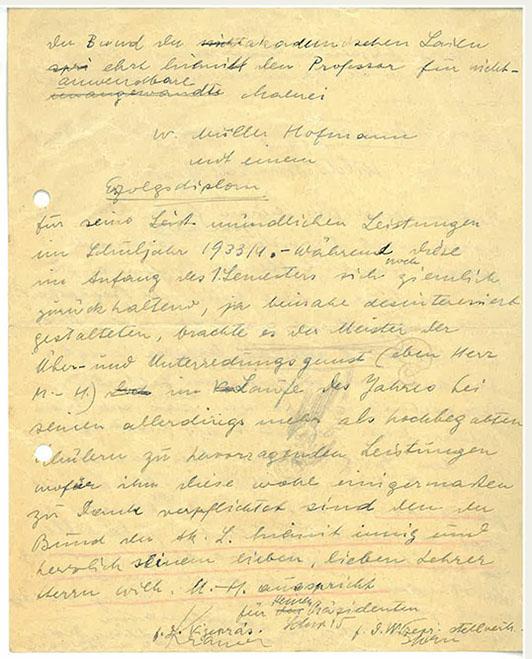 Der Bund der akademischen Laien
ehrt hiemit den Professor für nicht-
anwendbare
Malerei
W. Müller Hofmann
mit einem
Erfolgsdiplom
für seine mündlichen Leistungen
im Schuljahr 1933/4. – Während diese
noch
im Anfang des 1. Semesters sich ziemlich
zurückhaltend, ja beinahe desinteressiert
gestalteten, brachte es der Meister der
Über- und Unterredungskunst (eben Herr
M.-H.) im Laufe des Jahres bei
seinen allerdings mehr als hochbegabten
Schülern zu hervorragenden Leistungen
wofür ihm diese wohl einigermaßen
zu Dank verpflichtet sind den der
Bund der ak. L. hiemit innig und
herzlich seinem lieben, lieben Lehrer
Herrn Wilh. M.-H. ausspricht
für Präsidenten
Kramer